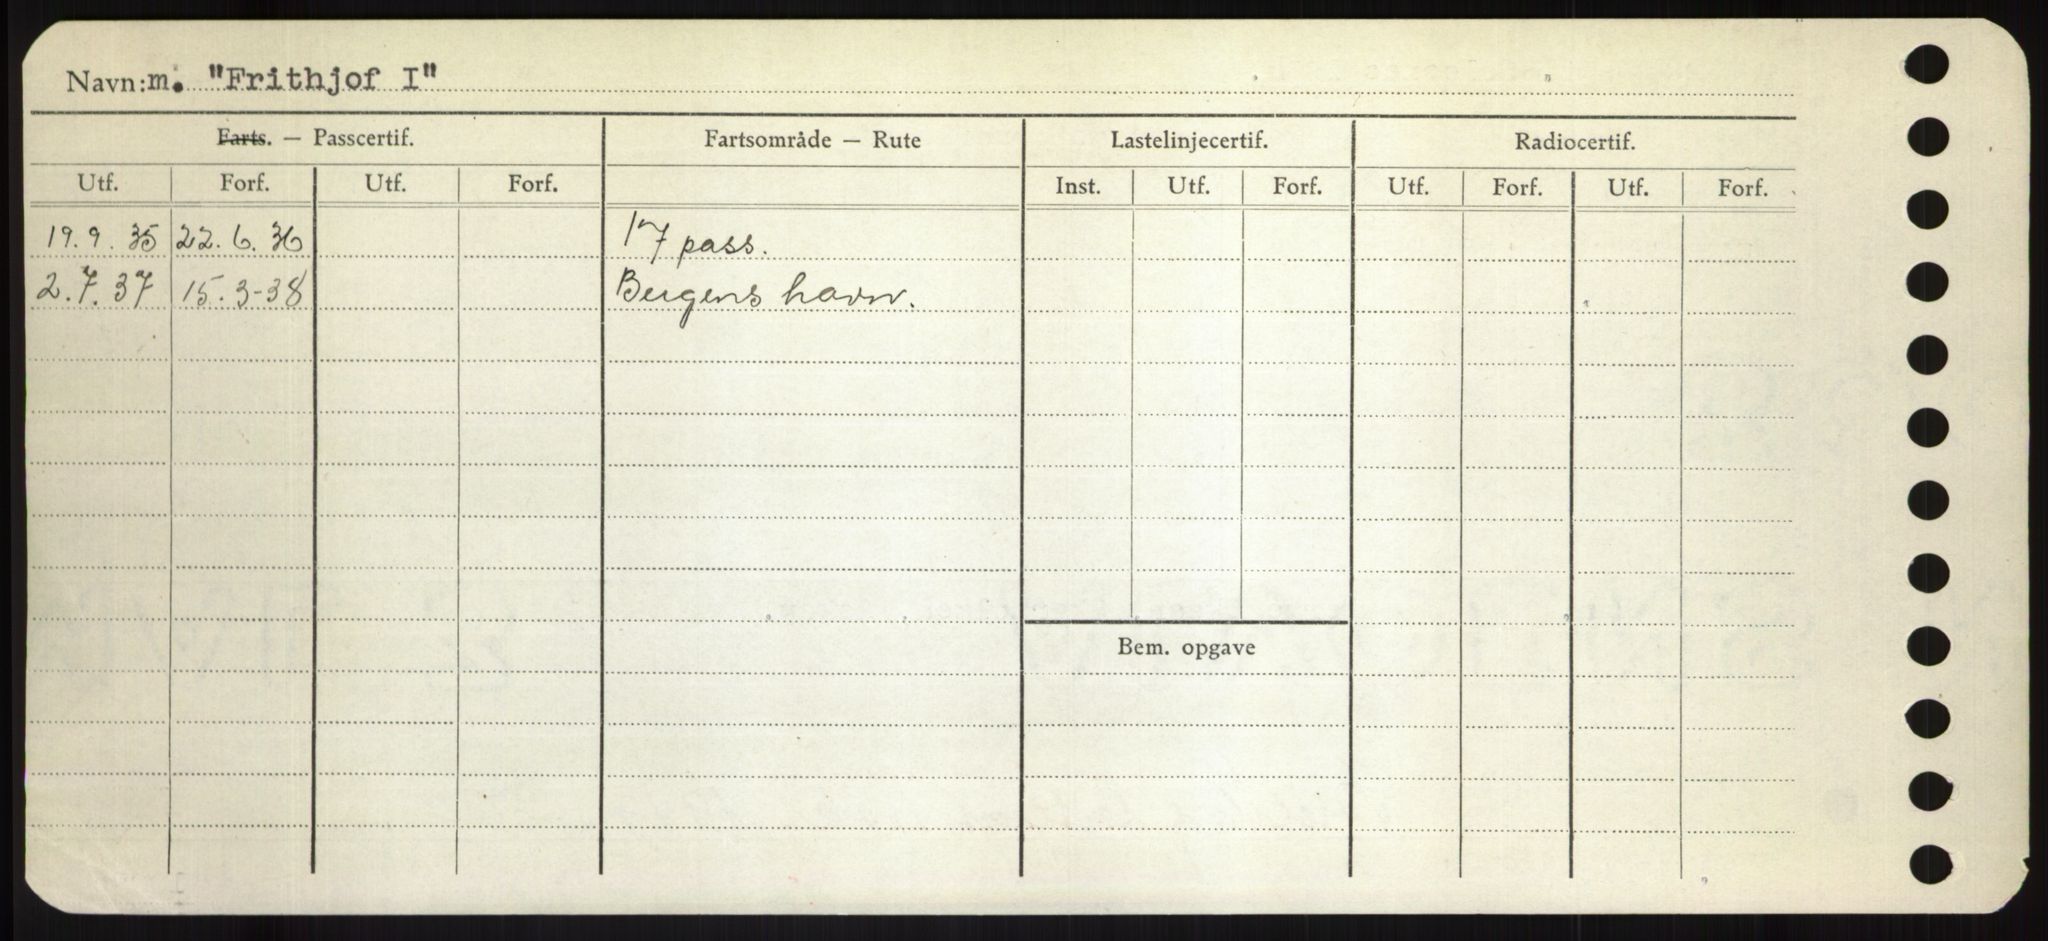 Navn: m. "Frithjof I"
Farts. — Passcertif. Fartsområde — Rute Lastelinjecertif. Radiocertif.
Utf. Forf. Utf. Forf. Inst. Utf. Forf. Utf. Forf. Utf. Forf.
19.9.35 22.6.36 17 pass.
2.7.37 15.3-38 Bergens havn.
Bem. opgave